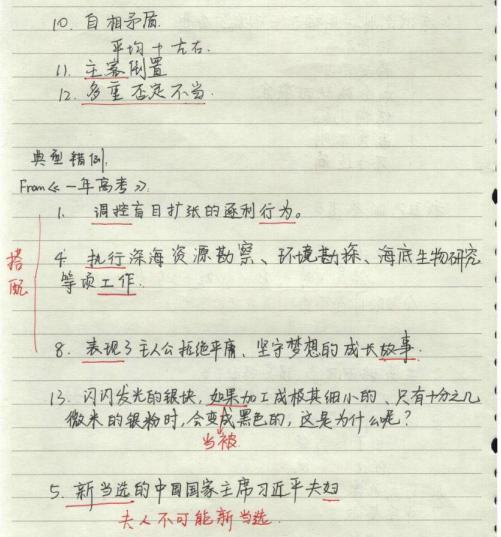 10. 自相矛盾.
平均＋左右.
11. 主客倒置
12. 多重否定不当.
典型错例.
From《一年高考》.
1. 调控盲目扩张的逐利行为。
搭配
4 执行深海资源勘察、环境勘探、海底生物研究
等项工作.
8. 表现了主人公拒绝平庸、坚守梦想的成长故事.
13. 闪闪发光的银块,如果加工成极其细小的、只有十分之几
微米的银粉时,会变成黑色的,这是为什么呢?
当被
5. 新当选的中国国家主席习近平夫妇
夫人不可能新当选.